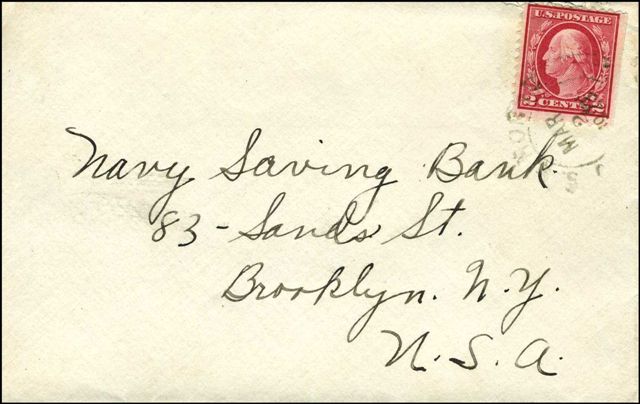 U.S. POSTAGE
2 CENTS 2
MAR
Navy Saving Bank.
83-Sands St.
Brooklyn. N.Y.
U.S.A.